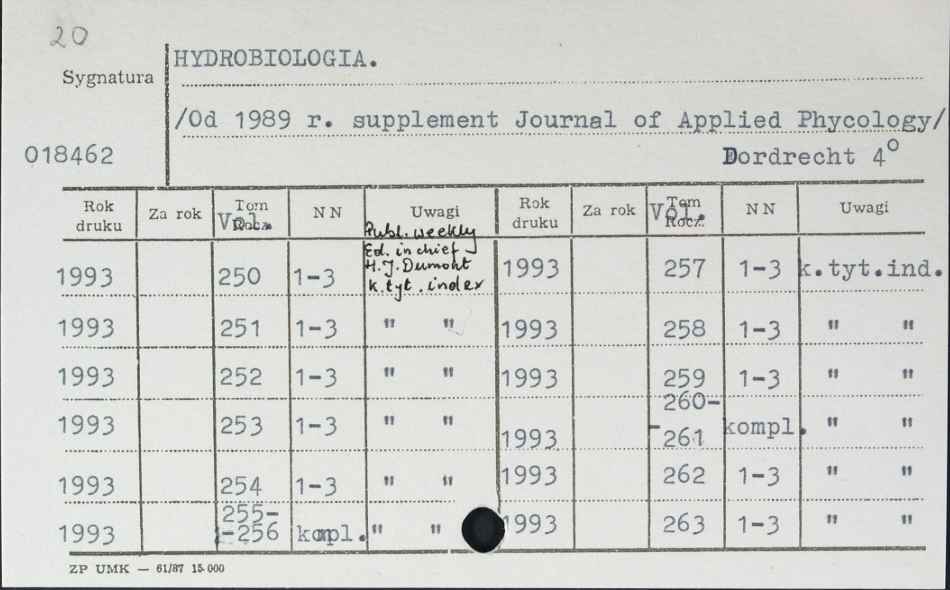 20
HYDROBIOLOGIA.
Sygnatura
/Od 1989 r. supplement Journal of Applied Phycology/
018462
Dordrecht 4°
Rok druku Za rok Tom Rocz. Vol. NN Uwagi Rok druku Za rok Tom Rocz. Vol. NN Uwagi
Publ. weekly
Ed. in chief
H.J. Dumont
k.tyt. index
1993 250 1-3 1993 257 1-3 k.tyt.ind.
1993 251 1-3 " " 1993 258 1-3 " "
1993 252 1-3 " " 1993 259 1-3 " "
1993 253 1-3 " " 1993 260--261 kompl. " "
1993 254 1-3 " " 1993 262 1-3 " "
1993 255--256 kompl. " " 1993 263 1-3 " "
ZP UMK — 61/87 15.000